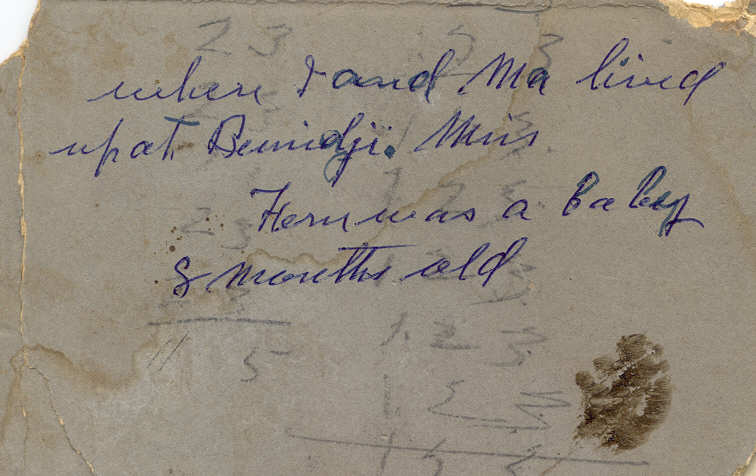 where I and Ma lived
up at Bemidji. Minn
Fern was a baby
8 months old
23
5
1.23